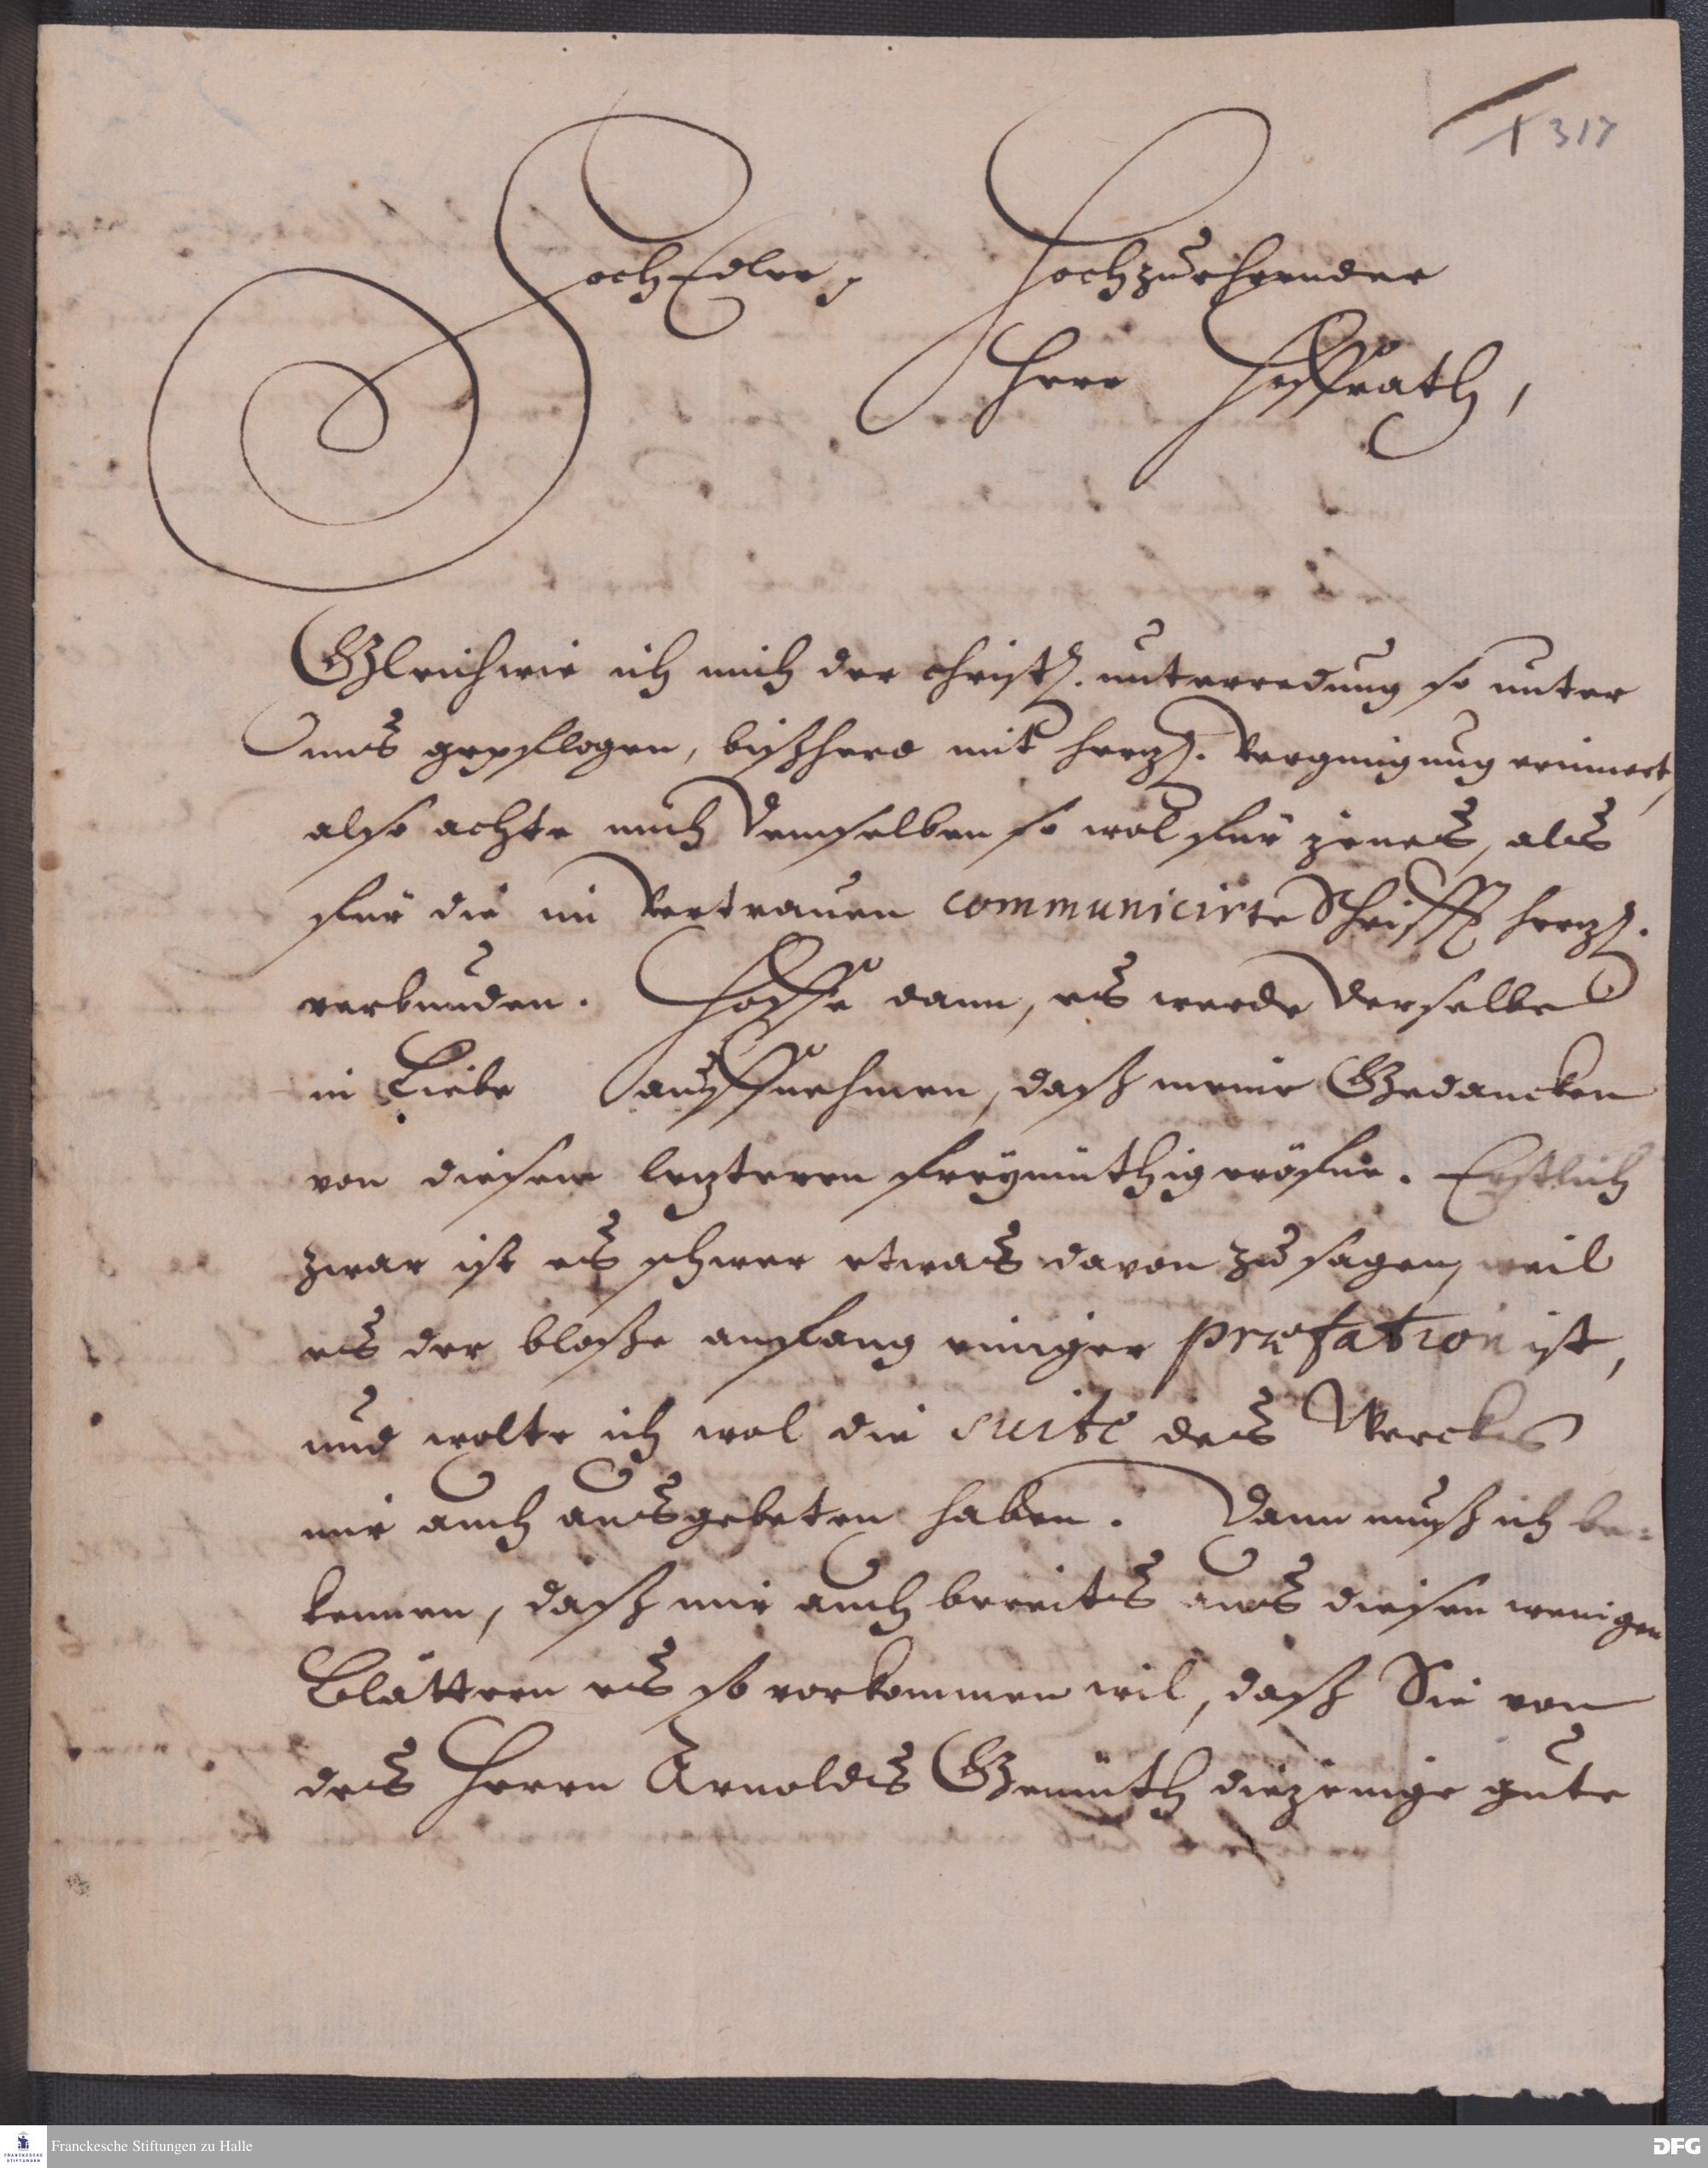 317
HochEdler, Hochzuehrender
Herr Hoffrath,
Gleichwie ich mich der christl. unterredung so unter
uns gepflogen, bißhero mit herzl. Vergnügung erinnert,
also achte mich Demselben so wol für jenes, als
für die im Vertrauen communicirte Schrifft herzl.
verbunden. Hoffe dann, es werde Derselbe
in Liebe auffnehmen, daß meine Gedancken
von diesem lezteren freymüthig eröfne. Erstlich
zwar ist es schwer etwas davon zu sagen, weil
es der bloße anfang einiger præfation ist,
und wolte ich wol die suite des Werckes
mir auch ausgebeten haben. Dann muß ich be-
kennen, daß mir auch bereits aus diesen wenigen
Blättern es so vorkommen wil, daß Sie von
des Herrn Arnolds Gemüth diejenige gute
Franckesche Stiftungen zu Halle
DFG